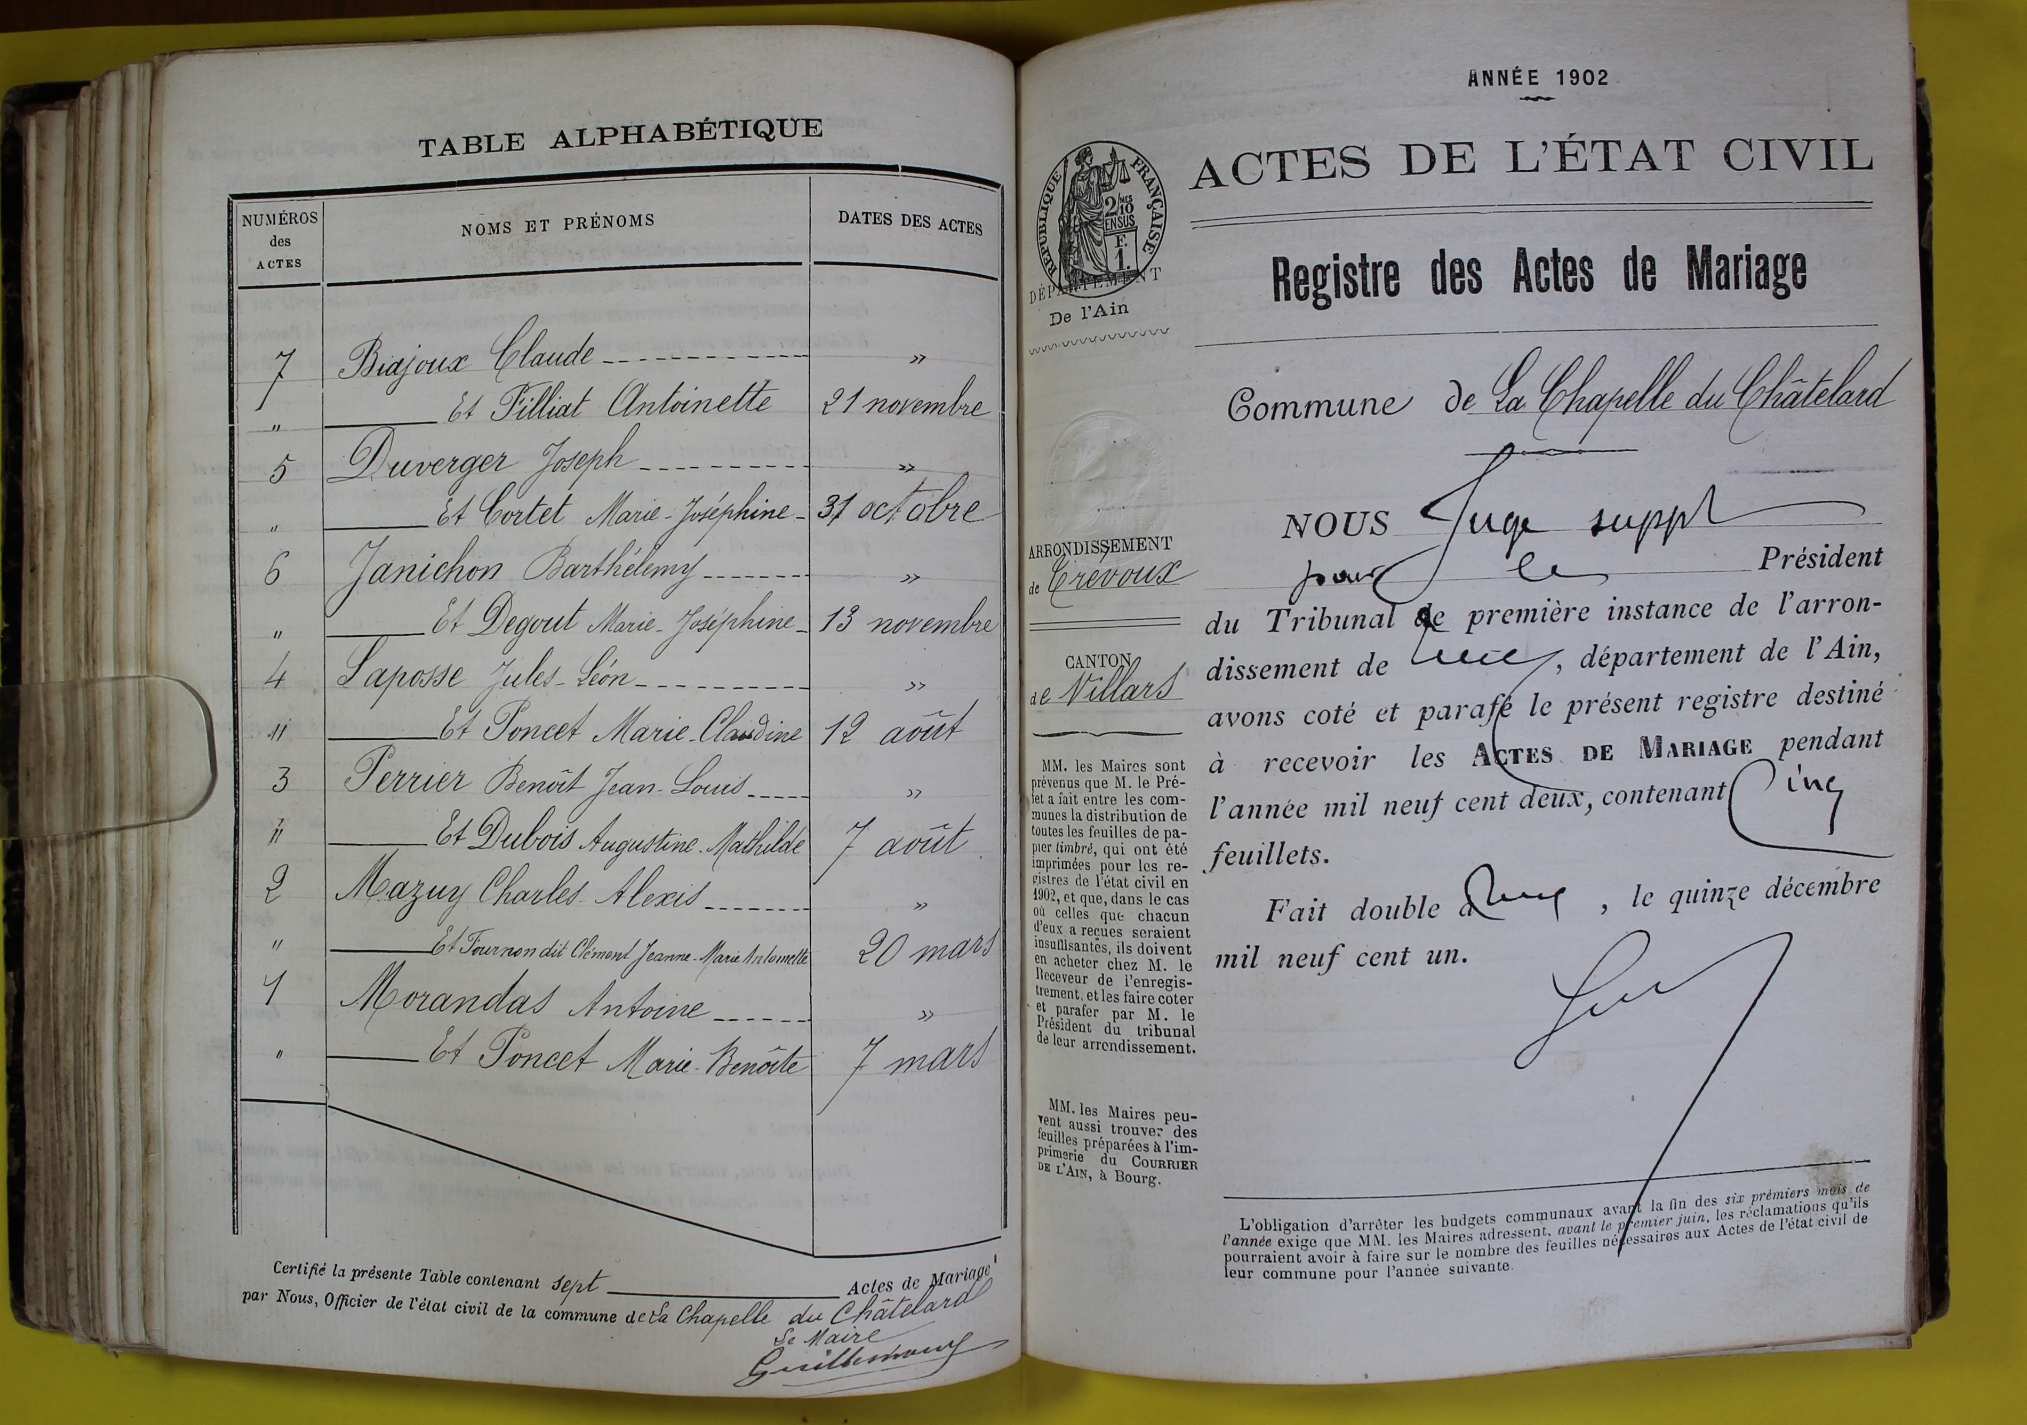 TABLE ALPHABÉTIQUE
NUMÉROS des ACTES
NOMS ET PRÉNOMS
DATES DES ACTES
7 Biajoux Claude »
" Et Filliat Antoinette 21 novembre
5 Duverger Joseph »
" Et Cortet Marie-Joséphine 31 octobre
6 Janichon Barthélemy »
" Et Degout Marie-Joséphine 13 novembre
4 Laposse Jules-Léon »
" Et Poncet Marie-Claudine 12 août
3 Perrier Benoît Jean-Louis »
" Et Dubois Augustine-Mathilde 7 août
2 Mazuy Charles-Alexis »
" Et Fournon dit Clément Jeanne-Marie Antoinette 20 mars
1 Morandas Antoine »
" Et Poncet Marie-Benoîte 7 mars
Certifié la présente Table contenant sept Actes de Mariage
par Nous, Officier de l'état civil de la commune de La Chapelle du Châtelard
Le Maire
ANNÉE 1902
ACTES DE L'ÉTAT CIVIL
RÉPUBLIQUE FRANÇAISE
2/10
EN SUS
F.
1.
DÉPARTEMENT
De l'Ain
Registre des Actes de Mariage
Commune de La Chapelle du Châtelard
ARRONDISSEMENT
de Trévoux
CANTON
de Villars
MM. les Maires sont
prévenus que M. le Pré-
fet a fait entre les com-
munes la distribution de
toutes les feuilles de pa-
pier timbré, qui ont été
imprimées pour les re-
gistres de l'état civil en
1902, et que, dans le cas
où celles que chacun
d'eux a reçues seraient
insuffisantes, ils doivent
en acheter chez M. le
Receveur de l'enregis-
trement, et les faire coter
et parafer par M. le
Président du tribunal
de leur arrondissement.
MM. les Maires peu-
vent aussi trouver des
feuilles préparées à l'im-
primerie du COURRIER
DE L'AIN, à Bourg.
NOUS Juge suppt
pour le Président
du Tribunal de première instance de l'arron-
dissement de , département de l'Ain,
avons coté et parafé le présent registre destiné
à recevoir les ACTES DE MARIAGE pendant
l'année mil neuf cent deux, contenant Cinq
feuillets.
Fait double à , le quinze décembre
mil neuf cent un.
L'obligation d'arrêter les budgets communaux avant la fin des six prémiers mois de
l'année exige que MM. les Maires adressent, avant le premier juin, les réclamations qu'ils
pourraient avoir à faire sur le nombre des feuilles nécessaires aux Actes de l'état civil de
leur commune pour l'année suivante.